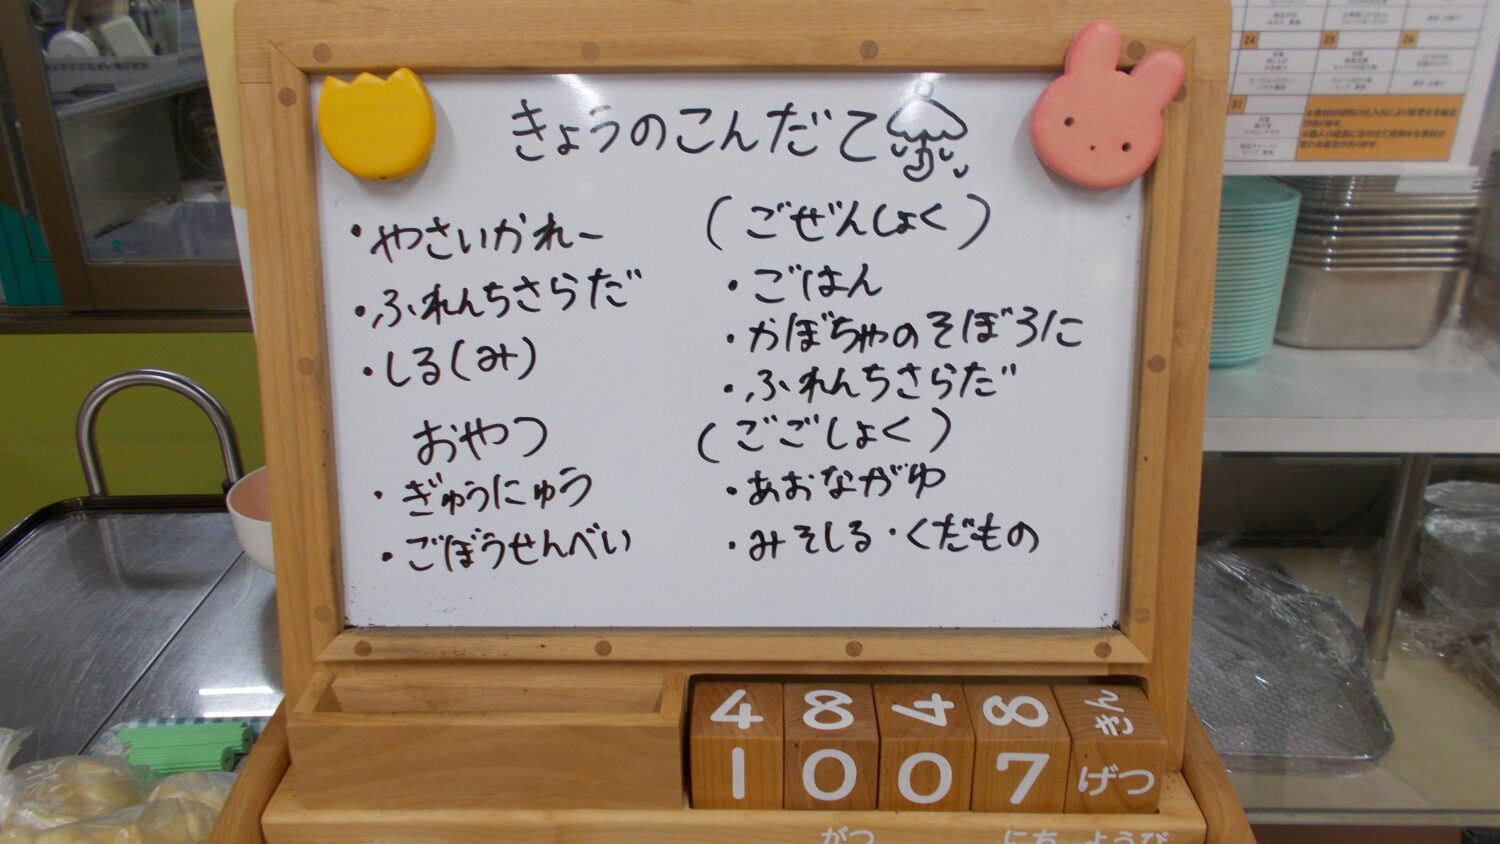 きょうのこんだて
・やさいかれー
・ふれんちさらだ
・しる(み)
おやつ
・ぎゅうにゅう
・ごぼうせんべい
(ごぜんしょく)
・ごはん
・かぼちゃのそぼろに
・ふれんちさらだ
(ごごしょく)
・あおながゆ
・みそしる・くだもの
4 8 4 8 きん
1 0 0 7 げつ
がつ にち ようび
24 25 26
31